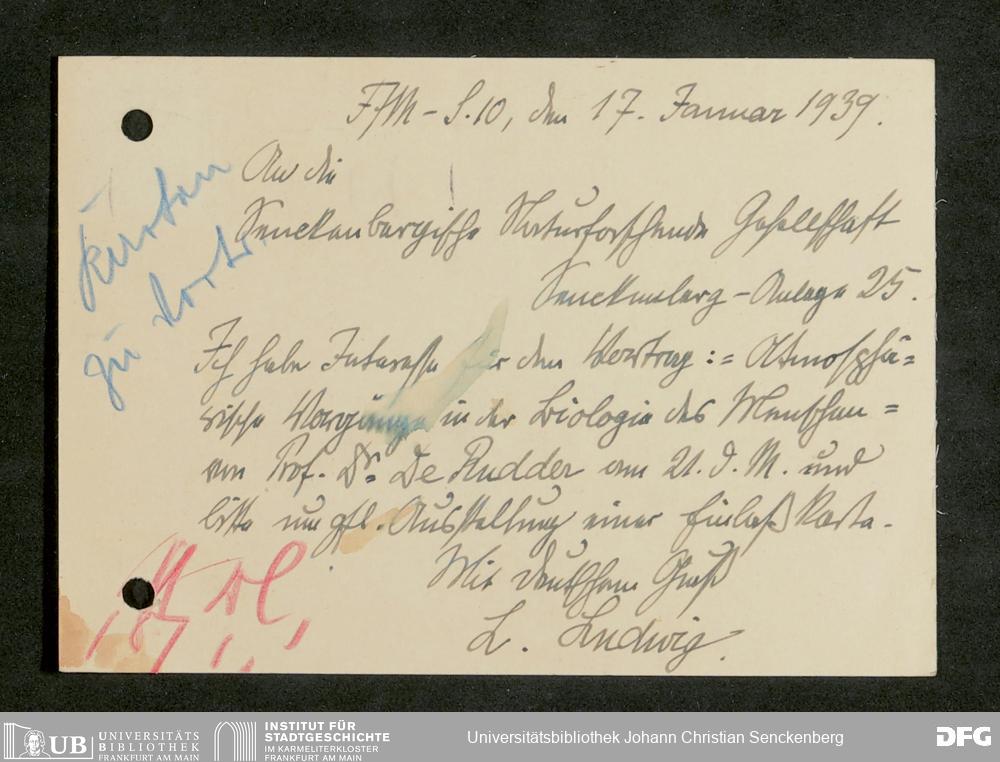 F/M - S. 10, den 17. Januar 1939.
An die
Senckenbergische Naturforschende Gesellschaft
Senckenberg-Anlage 25.
Ich habe Interesse für den Vortrag := Atmosphä=
rische Vorgänge in der Biologie des Menschen =
von Prof. Dr. De Rudder am 21. d. M. und
bitte um gfl. Ausstellung einer Einlaß Karte.
Mit deutschem Gruß
L. Ludwig.
Karten
zu Vortr.
UB UNIVERSITÄTS
BIBLIOTHEK
FRANKFURT AM MAIN
INSTITUT FÜR
STADTGESCHICHTE
IM KARMELITERKLOSTER
FRANKFURT AM MAIN
Universitätsbibliothek Johann Christian Senckenberg
DFG